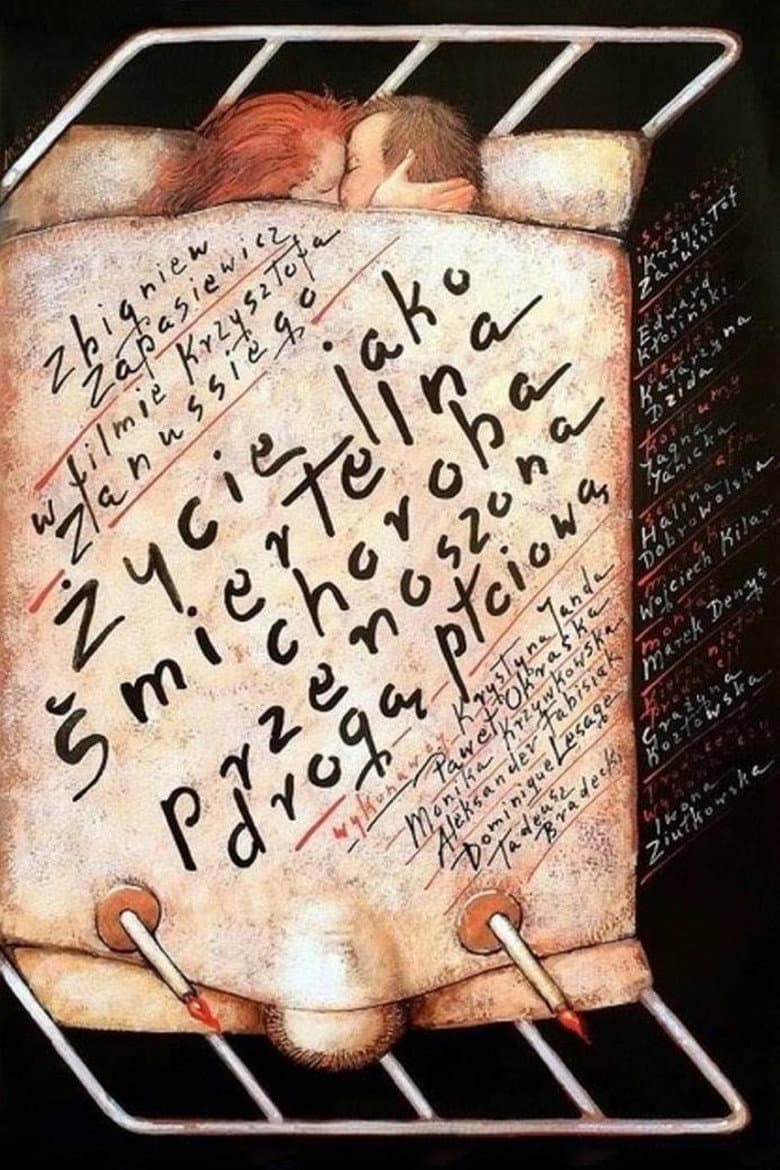 Zbigniew
Zapasiewicz
w filmie Krzysztofa
Zanussiego
Życie jako
śmiertelna
choroba
przenoszona
drogą płciową
wykonawcy Krystyna Janda
Paweł Okraska
Monika Krzywkowska
Aleksander Fabisiak
Dominique Lesage
Tadeusz
Bradecki
Krzysztof
Zanussi
Edward
Kłosiński
Katarzyna
Dzida
kostiumy
Jagna
Janicka
Halina
Dobrowolska
muzyka
Wojciech Kilar
montaż
Marek Denys
Grażyna
Kozłowska
Iwona
Ziułkowska